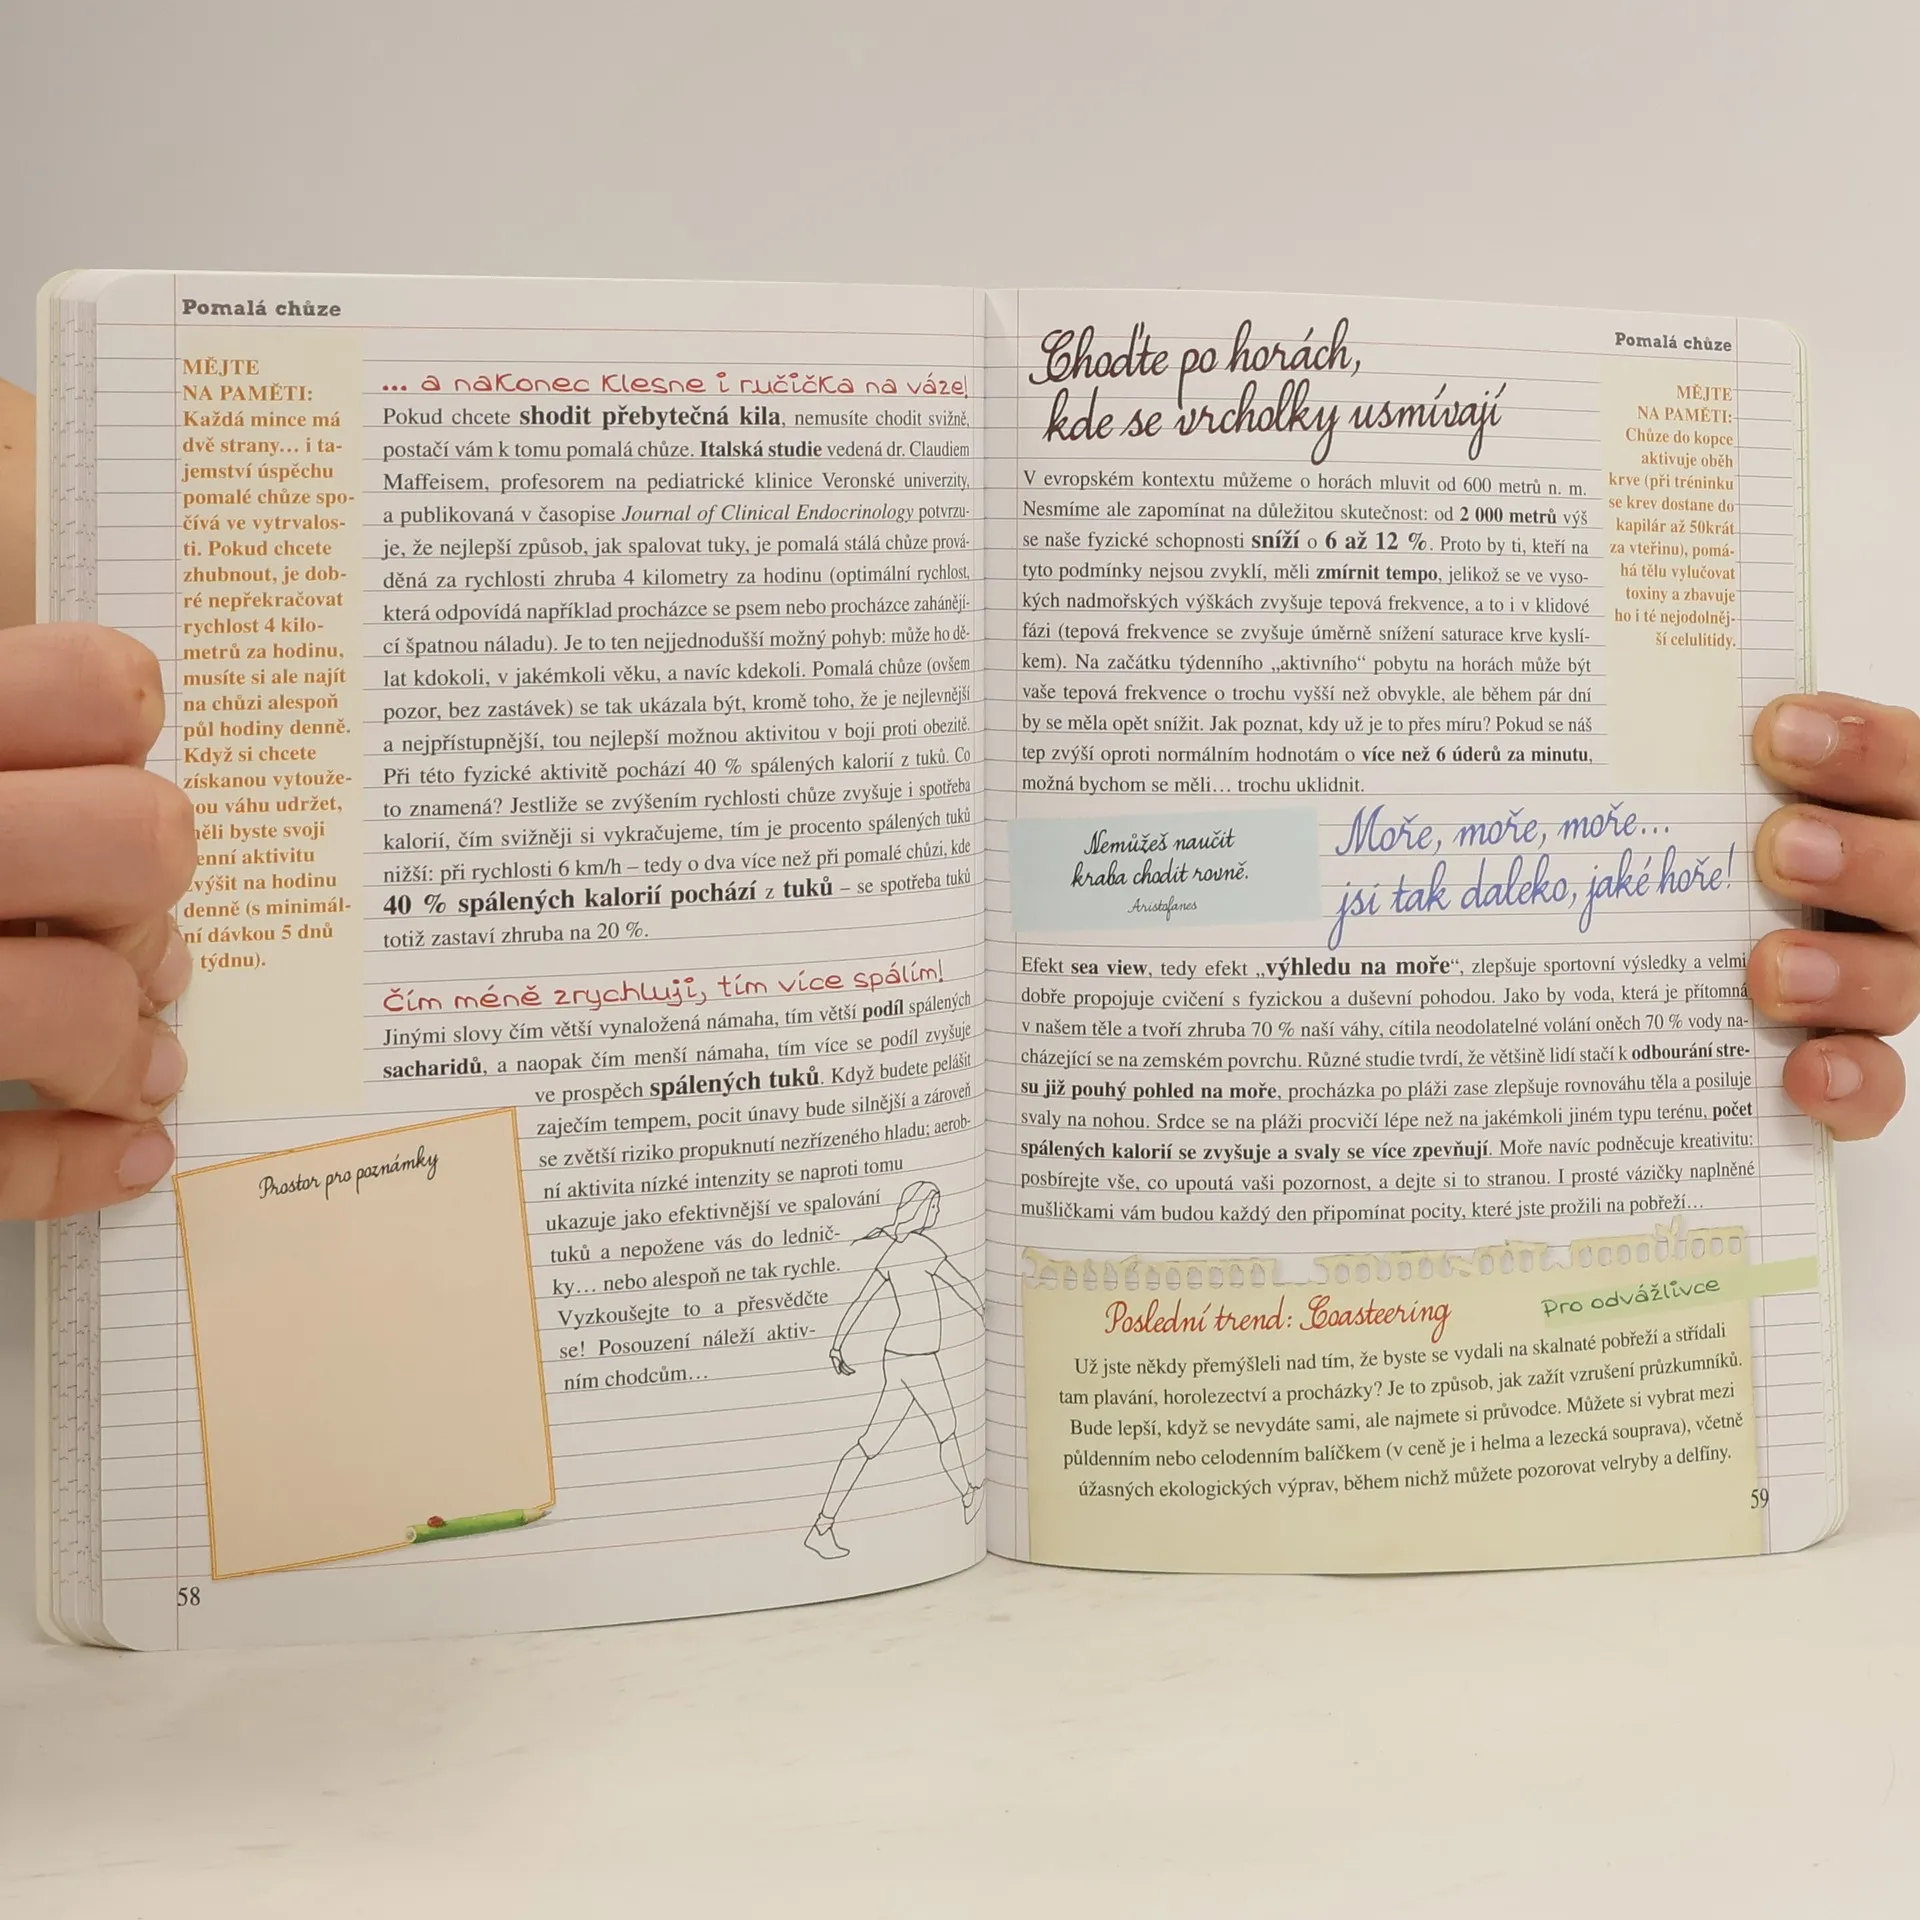 Pomalá chůze
MĚJTE
NA PAMĚTI:
Každá mince má
dvě strany… i ta-
jemství úspěchu
pomalé chůze spo-
čívá ve vytrvalos-
ti. Pokud chcete
zhubnout, je dob-
ré nepřekračovat
rychlost 4 kilo-
metrů za hodinu,
musíte si ale najít
na chůzi alespoň
půl hodiny denně.
Když si chcete
získanou vytouže-
ou váhu udržet,
ěli byste svoji
enní aktivitu
výšit na hodinu
denně (s minimál-
ní dávkou 5 dnů
týdnu).
... a nakonec klesne i ručička na váze!
Pokud chcete shodit přebytečná kila, nemusíte chodit svižně,
postačí vám k tomu pomalá chůze. Italská studie vedená dr. Claudiem
Maffeisem, profesorem na pediatrické klinice Veronské univerzity,
a publikovaná v časopise Journal of Clinical Endocrinology potvrzu-
je, že nejlepší způsob, jak spalovat tuky, je pomalá stálá chůze prová-
děná za rychlosti zhruba 4 kilometry za hodinu (optimální rychlost,
která odpovídá například procházce se psem nebo procházce zahánějí-
cí špatnou náladu). Je to ten nejjednodušší možný pohyb: může ho dě-
lat kdokoli, v jakémkoli věku, a navíc kdekoli. Pomalá chůze (ovšem
pozor, bez zastávek) se tak ukázala být, kromě toho, že je nejlevnější
a nejpřístupnější, tou nejlepší možnou aktivitou v boji proti obezitě.
Při této fyzické aktivitě pochází 40 % spálených kalorií z tuků. Co
to znamená? Jestliže se zvýšením rychlosti chůze zvyšuje i spotřeba
kalorií, čím svižněji si vykračujeme, tím je procento spálených tuků
nižší: při rychlosti 6 km/h – tedy o dva více než při pomalé chůzi, kde
40 % spálených kalorií pochází z tuků – se spotřeba tuků
totiž zastaví zhruba na 20 %.
Čím méně zrychluji, tím více spálím!
Jinými slovy čím větší vynaložená námaha, tím větší podíl spálených
sacharidů, a naopak čím menší námaha, tím více se podíl zvyšuje
ve prospěch spálených tuků. Když budete pelášit
zaječím tempem, pocit únavy bude silnější a zároveň
se zvětší riziko propuknutí nezřízeného hladu; aerob-
ní aktivita nízké intenzity se naproti tomu
ukazuje jako efektivnější ve spalování
tuků a nepožene vás do lednič-
ky… nebo alespoň ne tak rychle.
Vyzkoušejte to a přesvědčte
se! Posouzení náleží aktiv-
ním chodcům…
Prostor pro poznámky
58
Pomalá chůze
Choďte po horách,
kde se vrcholky usmívají
V evropském kontextu můžeme o horách mluvit od 600 metrů n. m.
Nesmíme ale zapomínat na důležitou skutečnost: od 2 000 metrů výš
se naše fyzické schopnosti sníží o 6 až 12 %. Proto by ti, kteří na
tyto podmínky nejsou zvyklí, měli zmírnit tempo, jelikož se ve vyso-
kých nadmořských výškách zvyšuje tepová frekvence, a to i v klidové
fázi (tepová frekvence se zvyšuje úměrně snížení saturace krve kyslí-
kem). Na začátku týdenního „aktivního“ pobytu na horách může být
vaše tepová frekvence o trochu vyšší než obvykle, ale během pár dní
by se měla opět snížit. Jak poznat, kdy už je to přes míru? Pokud se náš
tep zvýší oproti normálním hodnotám o více než 6 úderů za minutu,
možná bychom se měli… trochu uklidnit.
MĚJTE
NA PAMĚTI:
Chůze do kopce
aktivuje oběh
krve (při tréninku
se krev dostane do
kapilár až 50krát
za vteřinu), pomá-
há tělu vylučovat
toxiny a zbavuje
ho i té nejodolněj-
ší celulitidy.
Nemůžeš naučit
kraba chodit rovně.
Aristofanes
Moře, moře, moře...
jsi tak daleko, jaké hoře!
Efekt sea view, tedy efekt „výhledu na moře“, zlepšuje sportovní výsledky a velmi
dobře propojuje cvičení s fyzickou a duševní pohodou. Jako by voda, která je přítomná
v našem těle a tvoří zhruba 70 % naší váhy, cítila neodolatelné volání oněch 70 % vody na-
cházející se na zemském povrchu. Různé studie tvrdí, že většině lidí stačí k odbourání stre-
su již pouhý pohled na moře, procházka po pláži zase zlepšuje rovnováhu těla a posiluje
svaly na nohou. Srdce se na pláži procvičí lépe než na jakémkoli jiném typu terénu, počet
spálených kalorií se zvyšuje a svaly se více zpevňují. Moře navíc podněcuje kreativitu:
posbírejte vše, co upoutá vaši pozornost, a dejte si to stranou. I prosté vázičky naplněné
mušličkami vám budou každý den připomínat pocity, které jste prožili na pobřeží…
Poslední trend: Coasteering
Pro odvážlivce
Už jste někdy přemýšleli nad tím, že byste se vydali na skalnaté pobřeží a střídali
tam plavání, horolezectví a procházky? Je to způsob, jak zažít vzrušení průzkumníků.
Bude lepší, když se nevydáte sami, ale najmete si průvodce. Můžete si vybrat mezi
půldenním nebo celodenním balíčkem (v ceně je i helma a lezecká souprava), včetně
úžasných ekologických výprav, během nichž můžete pozorovat velryby a delfíny.
59